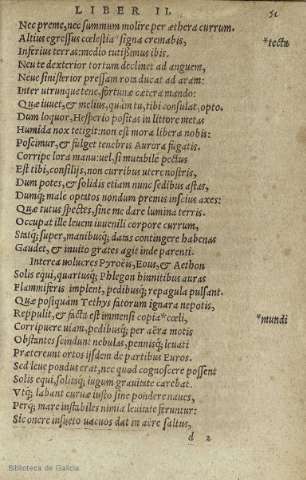 LIBER II.
51
Nec preme, nec summum molire per æthera currum.
Altius egressus cœlestia *signa cremabis,
*tecta
Inferius terras: medio tutissimus ibis.
Neu te dexterior tortum declinet ad anguem,
Neue sinisterior pressam rota ducat ad aram:
Inter utrunque tene, fortunæ cætera mando:
Quæ iuuet, & melius, quàm tu, tibi consulat, opto.
Dum loquor, Hesperio positas in littore metas
Humida nox tetigit: non est mora libera nobis:
Poscimur, & fulget tenebris Aurora fugatis.
Corripe lora manu: uel, si mutabile pectus
Est tibi, consilijs, non curribus utere nostris,
Dum potes, & solidis etiam nunc sedibus astas,
Dumq; male optatos nondum premis inscius axes:
Quæ tutus spectes, sine me dare lumina terris.
Occupat ille leuem iuuenili corpore currum,
Statq; super, manibusq; datas contingere habenas
Gaudet, & inuito grates agit inde parenti.
Interea uolucres Pyroëis, Eous, & Aethon
Solis equi, quartusq; Phlegon hinnitibus auras
Flammiferis implent, pedibusq; repagula pulsant.
Quæ postquam Tethys fatorum ignara nepotis,
Reppulit, & facta est immensi copia *cœli,
*mundi
Corripuere uiam, pedibusq; per aëra motis
Obstantes scindunt nebulas, pennisq; leuati
Prætereunt ortos ijsdem de partibus Euros.
Sed leue pondus erat, nec quod cognoscere possent
Solis equi, solitaq; iugum grauitate carebat.
Vtq; labant curuæ iusto sine pondere naues,
Perq; mare instabiles nimia leuitate feruntur:
Sic onere insueto uacuos dat in aëre saltus,
d 2
Biblioteca de Galicia